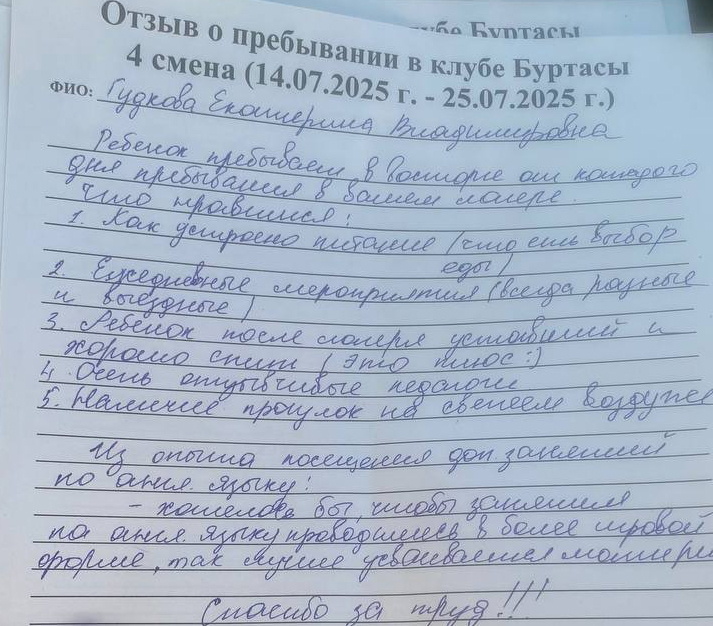 клубе Буртасы
Отзыв о пребывании в клубе Буртасы
4 смена (14.07.2025 г. - 25.07.2025 г.)
ФИО: Гудкова Екатерина Владимировна
Ребенок пребывает в восторге от каждого
дня пребывания в вашем лагере.
Что нравится:
1. Как устроено питание (что есть выбор
еды)
2. Ежедневные мероприятия (всегда разные
и выездные)
3. Ребенок после лагеря уставший и
хорошо спит (это плюс :)
4. Очень отзывчивые педагоги
5. Наличие прогулок на свежем воздухе
Из опыта посещения доп. занятий
по англ. языку:
- хотелось бы, чтобы занятия
по англ. языку проводились в более игровой
форме, так лучше усваивается матери
Спасибо за труд!!!